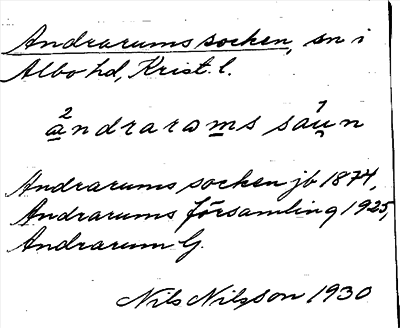 Andrarums socken, sn i
Albo hd, Krist. l.
²andrarams sa¹un
Andrarums socken jb 1874,
Andrarums församling 1925,
Andrarum G.
Nils Nilsson 1930